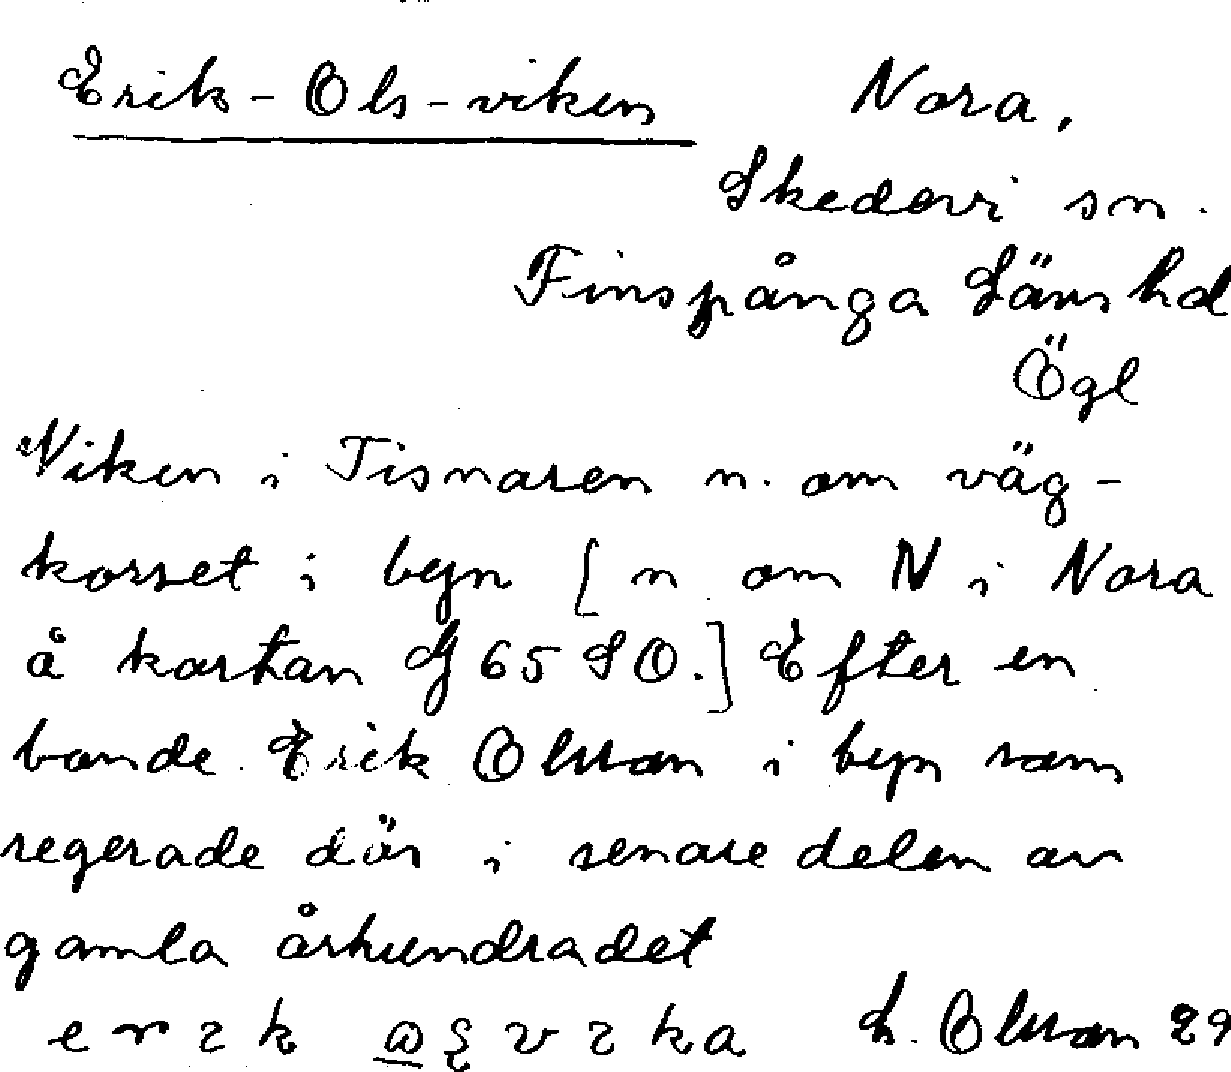 Erik-Ols-viken Nora,
Skedevi sn.
Finspånga Läns hd
Ögl
Viken i Tisnaren n. om väg-
korset i byn [n om N i Nora
å kartan G 65 SO.] Efter en
bonde Erik Olsson i byn som
regerade där i senare delen av
gamla århundradet
L. Olsson 29